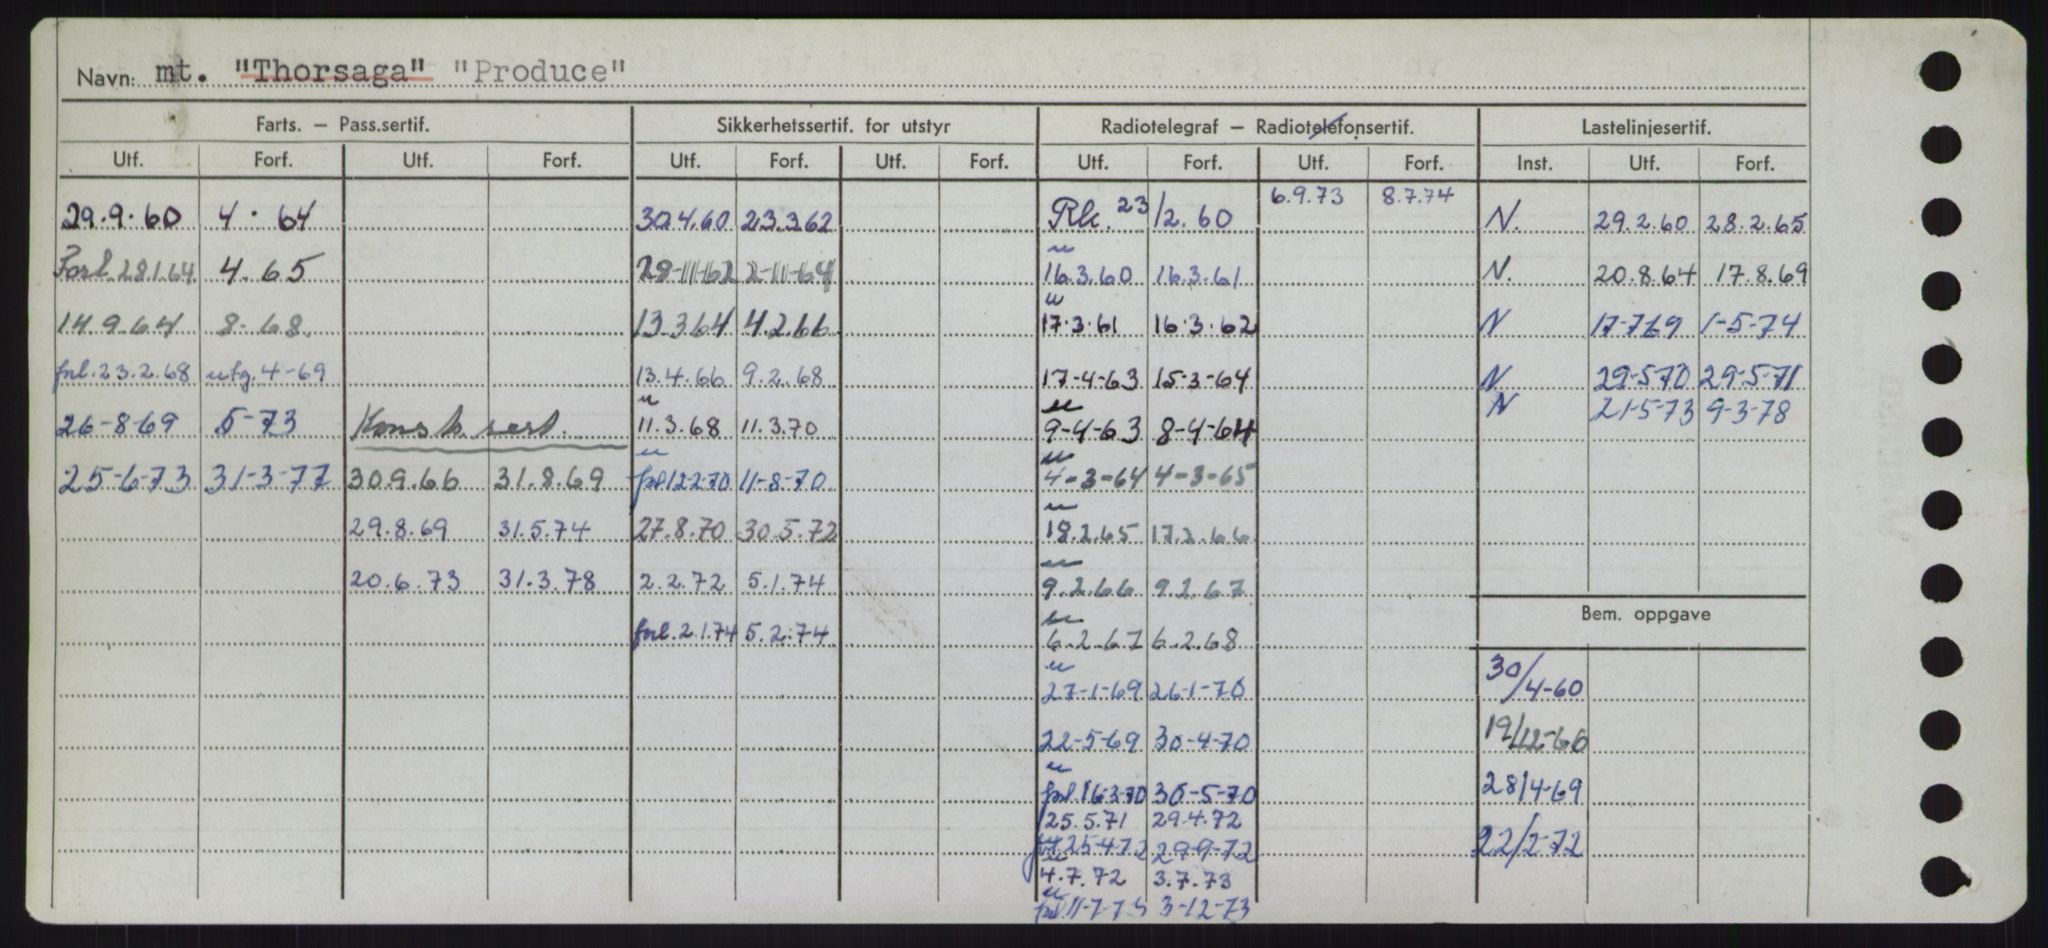 Navn: mt. "Thorsaga" "Produce"
Farts. – Pass.sertif. Sikkerhetssertif. for utstyr Radiotelegraf – Radiotelefonsertif. Lastelinjesertif.
Utf. Forf. Utf. Forf. Utf. Forf. Utf. Forf. Utf. Forf. Utf. Forf. Inst. Utf. Forf.
6.9.73 8.7.74
29.9.60 4. 64 30.4.60 23.3.62 Rk. 23/2.60 N. 29.2.60 28.2.65
Forl. 28.1.64 4.65 29-11-62 2-11-64 16.3.60 16.3.61 N. 20.8.64 17.8.69
14.9.64 8-68. 13.3.64 4.2.66 17.3.61 16.3.62 N 17-7-69 1-5-74
forl.23.2.68 utg.4-69 13.4.66 9.2.68 17-4-63 15-3-64 N 29-5-70 29-5-71
N 21-5-73 9-3-78
26-8-69 5-73 Konstr. sert. 11.3.68 11.3.70 9-4-63 8-4-64
25-6-73 31-3-77 30.9.66 31.8.69 forl 12-2-70 11-8-70 4-3-64 4-3-65
29.8.69 31.5.74 27.8.70 30.5.72 18.2.65 17.2.66
20.6.73 31.3.78 2.2.72 5.1.74 9.2.66 9.2.67
Bem. oppgave
forl. 2.1.74 5.2.74 6.2.67 6.2.68
27-1-69 26-1-70 30/4-60
22-5-69 30-4-70 19/12-66
forl.16-3-70 30-5-70 28/4-69
25.5.71 29.4.72
25-4-72 29-9-72 22/2-72
4.7.72 3.7.73
forl. 11-7-73 3-12-73